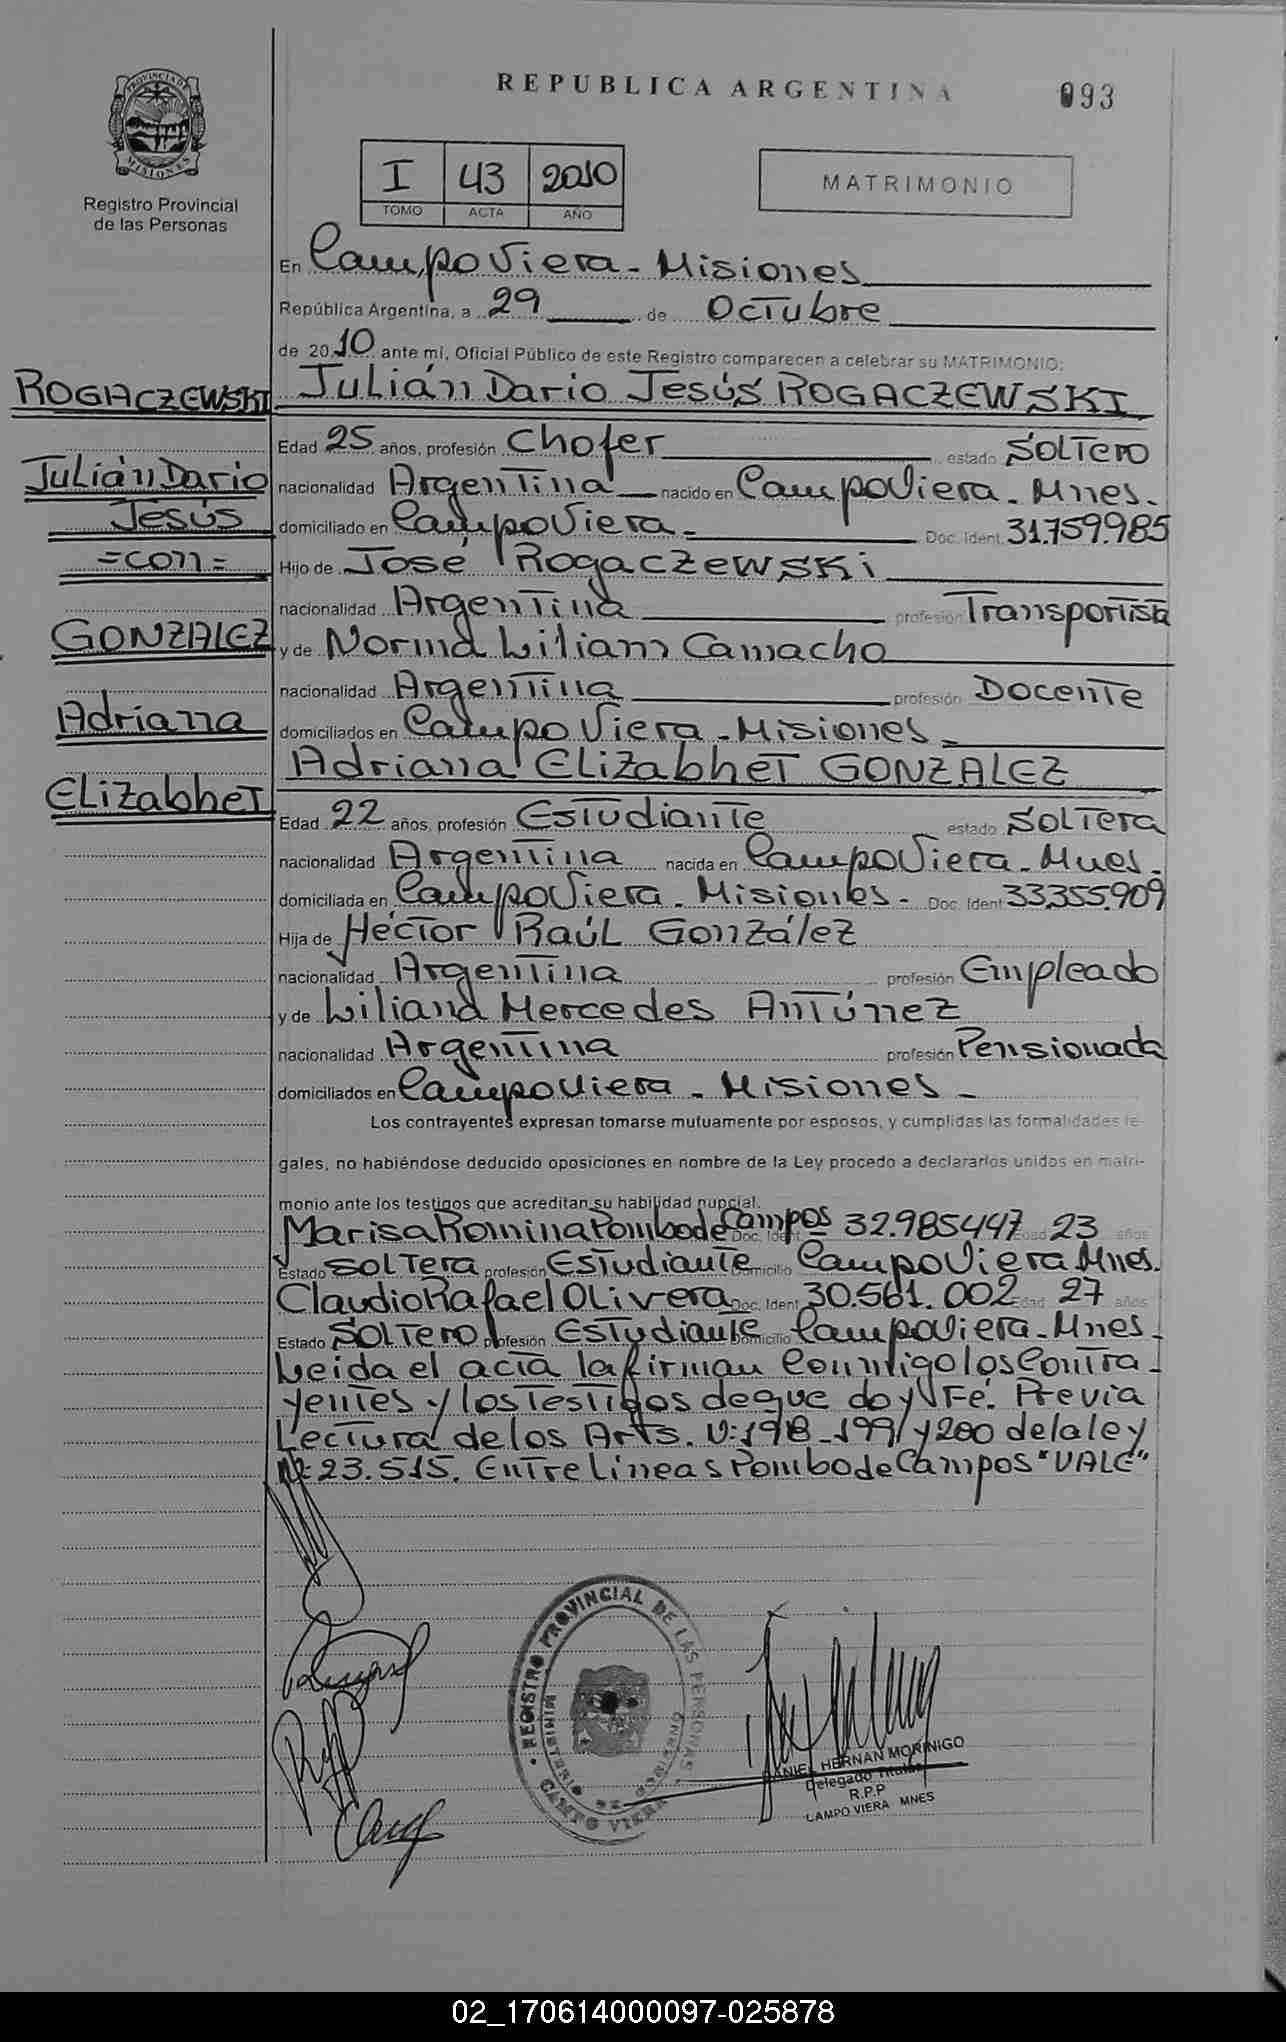 REPUBLICA ARGENTINA
093
PROVINCIA DE
MISIONES
Registro Provincial
de las Personas
I 43 2010
TOMO ACTA AÑO
MATRIMONIO
En Campo Viera - Misiones
República Argentina, a 29 de Octubre
de 2010 ante mí, Oficial Público de este Registro comparecen a celebrar su MATRIMONIO:
ROGACZEWSKI
Julián Dario Jesús ROGACZEWSKI
Edad 25 años, profesión Chofer estado Soltero
Julián Dario
nacionalidad Argentina nacido en Campo Viera - Mnes.
Jesús
domiciliado en Campo Viera - Doc. Ident. 31.759.985
=con=
Hijo de José Rogaczewski
nacionalidad Argentina profesión Transportista
GONZALEZ
y de Norma Liliam Camacho
nacionalidad Argentina profesión Docente
Adriana
domiciliados en Campo Viera - Misiones -
Adriana Elizabhet GONZALEZ
Elizabhet
Edad 22 años, profesión Estudiante estado Soltera
nacionalidad Argentina nacida en Campo Viera - Mnes.
domiciliada en Campo Viera - Misiones - Doc. Ident 33.355.909
Hija de Héctor Raúl González
nacionalidad Argentina profesión Empleado
y de Liliana Mercedes Antúnez
nacionalidad Argentina profesión Pensionada
domiciliados en Campo Viera - Misiones -
Los contrayentes expresan tomarse mutuamente por esposos, y cumplidas las formalidades le-
gales, no habiéndose deducido oposiciones en nombre de la Ley procedo a declararlos unidos en matri-
monio ante los testigos que acreditan su habilidad nupcial.
Marisa Romina Pombo de Campos Doc. Ident. 32.985.447 Edad 23 años
Estado Soltera profesión Estudiante Domicilio Campo Viera Mnes.
Claudio Rafael Olivera Doc. Ident 30.561.002 Edad 27 años
Estado Soltero profesión Estudiante Domicilio Campo Viera - Mnes.
Leida el acta la firman conmigo los contra-
yentes y los testigos de que doy Fé. Previa
Lectura de los Arts. Nº: 198 - 199 y 200 de la ley
Nº: 23.515. Entre lineas Pombo de Campos "VALE"
REGISTRO PROVINCIAL DE LAS PERSONAS
MINISTERIO DE GOBIERNO
CAMPO VIERA
DANIEL HERNAN MORINIGO
Delegado Titular
R.P.P
CAMPO VIERA MNES
02_170614000097-025878